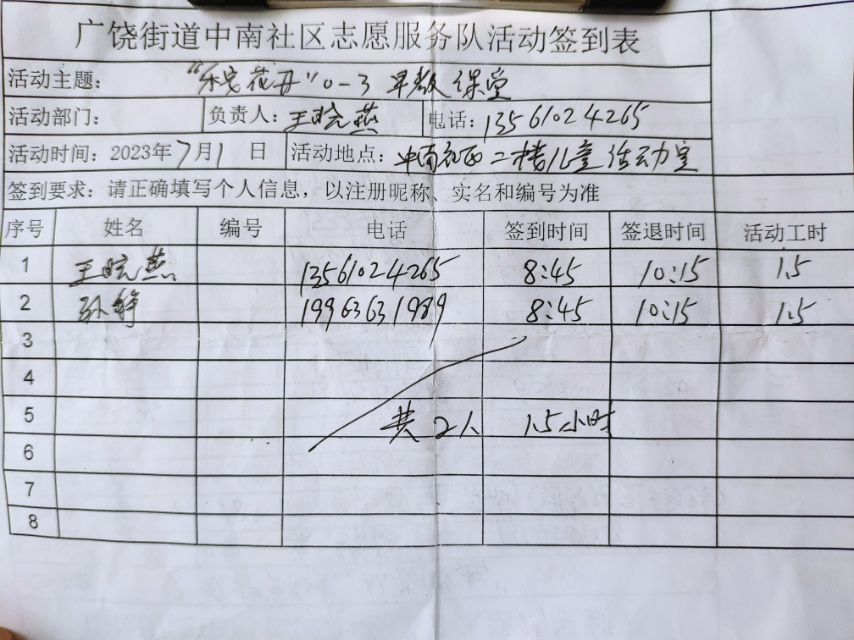 广饶街道中南社区志愿服务队活动签到表
活动主题: 花开" 0-3 早教课堂
活动部门: 负责人: 王晓燕 电话: 13561024265
活动时间: 2023年7月1日 活动地点: 中南社区二楼儿童活动室
签到要求: 请正确填写个人信息,以注册昵称、实名和编号为准
序号 姓名 编号 电话 签到时间 签退时间 活动工时
1 王晓燕 13561024265 8:45 10:15 1.5
2 孙静 19963631989 8:45 10:15 1.5
3
4
5 共2人 1.5小时
6
7
8